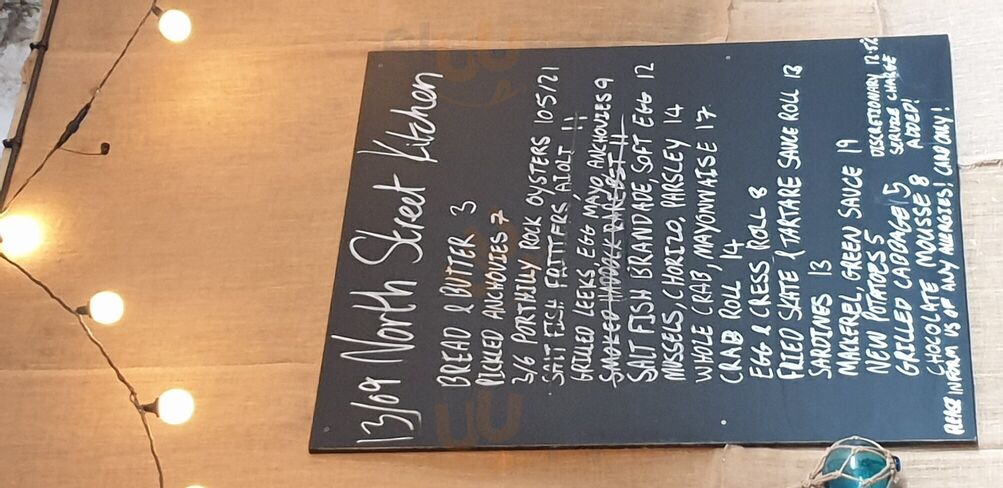 13/09 North Street Kitchen
BREAD & BUTTER 3
PICKED ANCHOVIES 7
3/6 PORTHILLY ROCK OYSTERS 10.5/21
SALT FISH FRITTERS AIOLI 11
GRILLED LEEKS, EGG, MAYO, ANCHOVIES 9
SMOKED HADDOCK RAREBIT 11
SALT FISH BRANDADE, SOFT EGG 12
MUSSELS, CHORIZO, PARSLEY 14
WHOLE CRAB, MAYONNAISE 17
CRAB ROLL 14
EGG & CRESS ROLL 8
FRIED SKATE & TARTARE SAUCE ROLL 13
SARDINES 13
MACKEREL, GREEN SAUCE 19
NEW POTATOES 5
GRILLED CABBAGE 5
CHOCOLATE MOUSSE 8
DISCRETIONARY 12.5%
SERVICE CHARGE
ADDED!
PLEASE INFORM US OF ANY ALLERGIES! CARD ONLY!